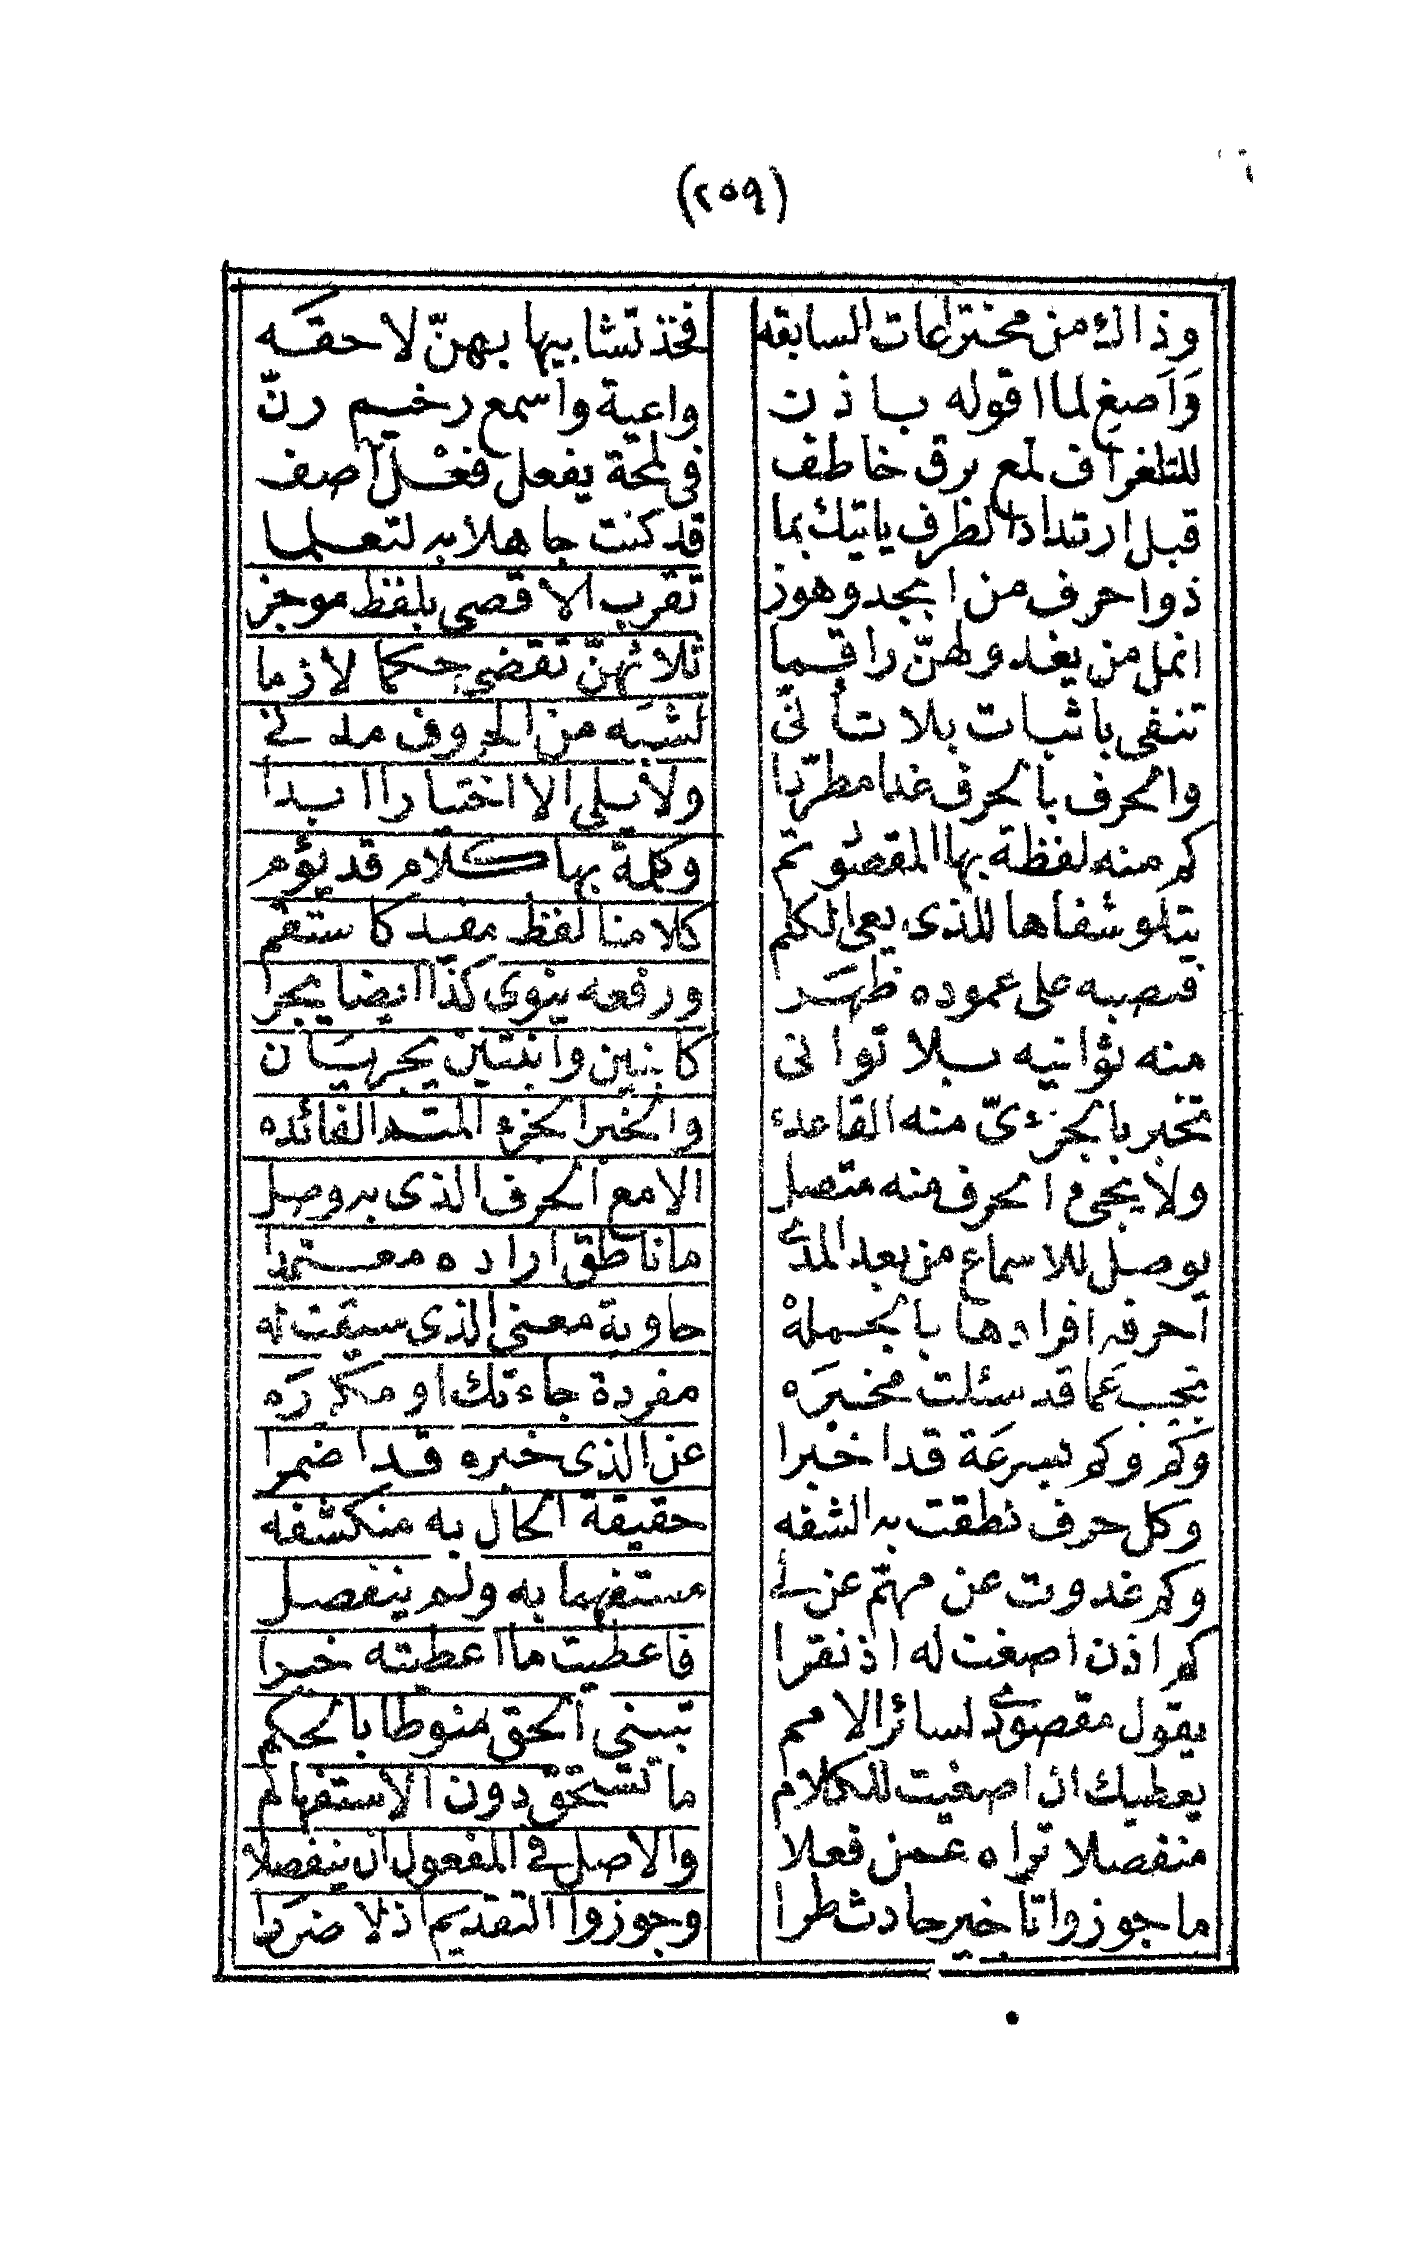 (٢٥٩)
وذاك من مخترعات السابقه فخذ تشابيها بهنّ لاحقه
وَاَصغ لما اقوله باذن واعية واسمع رخيم رنّ
للتلغراف لمع برق خاطف فى لمحة يفعل فعل آصف
قبل ارتداد الطرف ياتيك بما قد كنت جاهلا به لتعلما
ذوا حرف من ابجد وهوز تقرب الاقصى بلفظ موجز
انمل من يغد ولهنّ راقما ثلاثهنّ تقضى حكما لازما
تنفى باثبات بلا تأنّى لشبه من الحروف مدنى
والحرف بالحرف غدا مطرّبا ولا يلى الا اختيارا ابدا
كم منه لفظة بها المقصود تم وكلمة بها كلام قد يؤم
يتلو شفاها للذى يعى الكلم كلامنا لفظ مفيد كاستقم
فنصبه على عموده ظهر ورفعه ينوى كذا ايضا يجرا
منه ثوانيه بلا توانى كابنين وابنتين يجريان
تخبر بالجزءىّ منه القاعده والخبر الجزء المتم الفائده
ولا يجىء الحرف منه متصل الا مع الحرف الذى به وصل
يوصل للاسماع من بعد المدى ما ناطق اراده معتمدا
احرفه افرادها بالجمله حاوية معنى الذى سيقت له
تجيب عما قد سئلت مخبره مفردة جاءتك او مكرره
وكم وكم بسرعة قد اخبرا عن الذى خبره قد اضمرا
وكل حرف نطقت به الشفه حقيقة الحال به منكشفه
وكم غدوت عن مهمّ عن لى مستفهما به ولم ينفصل
كم اذن اصغت له اذ نقرا فاعطيت ما اعطيته خبرا
يقول مقصودى لسائر الامم تبينى الحق منوطا بالحكم
يعطيك ان اصغيت للكلام ما تستحق دون الاستفهام
منفصلا تراه عمن فعلا والاصل فى المفعول ان ينفصلا
ما جوزوا تاخير حادث طرا وجوزوا التقديم اذ لا ضررا